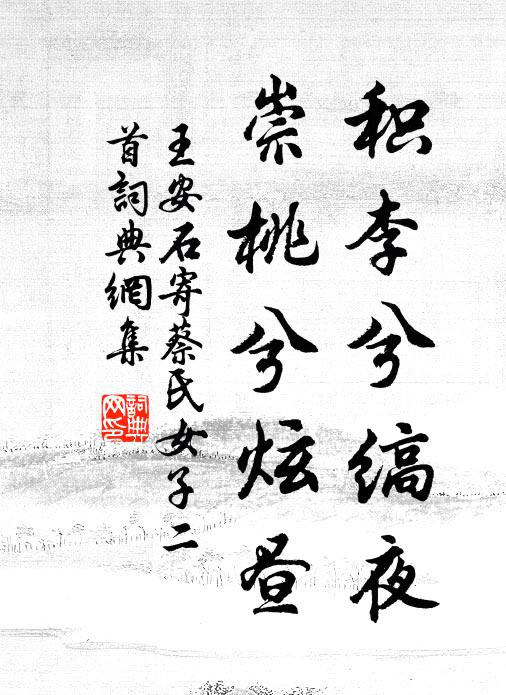 积李兮缟夜
崇桃兮炫昼
王安石寄蔡氏女子二
首詞典網集
詞典
网印